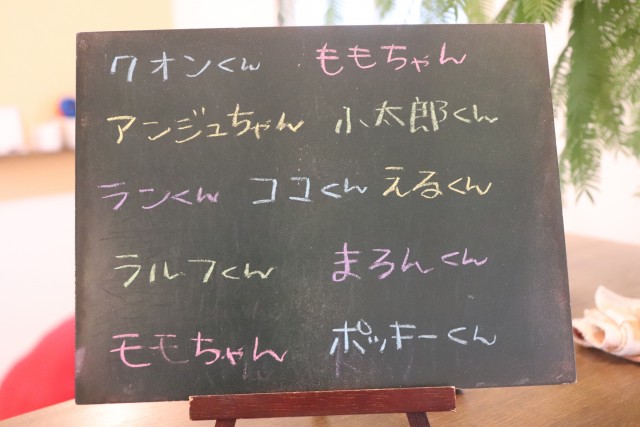 クオンくん ももちゃん
アンジュちゃん 小太郎くん
ランくん ココくん えるくん
ラルフくん まろんくん
モモちゃん ポッキーくん